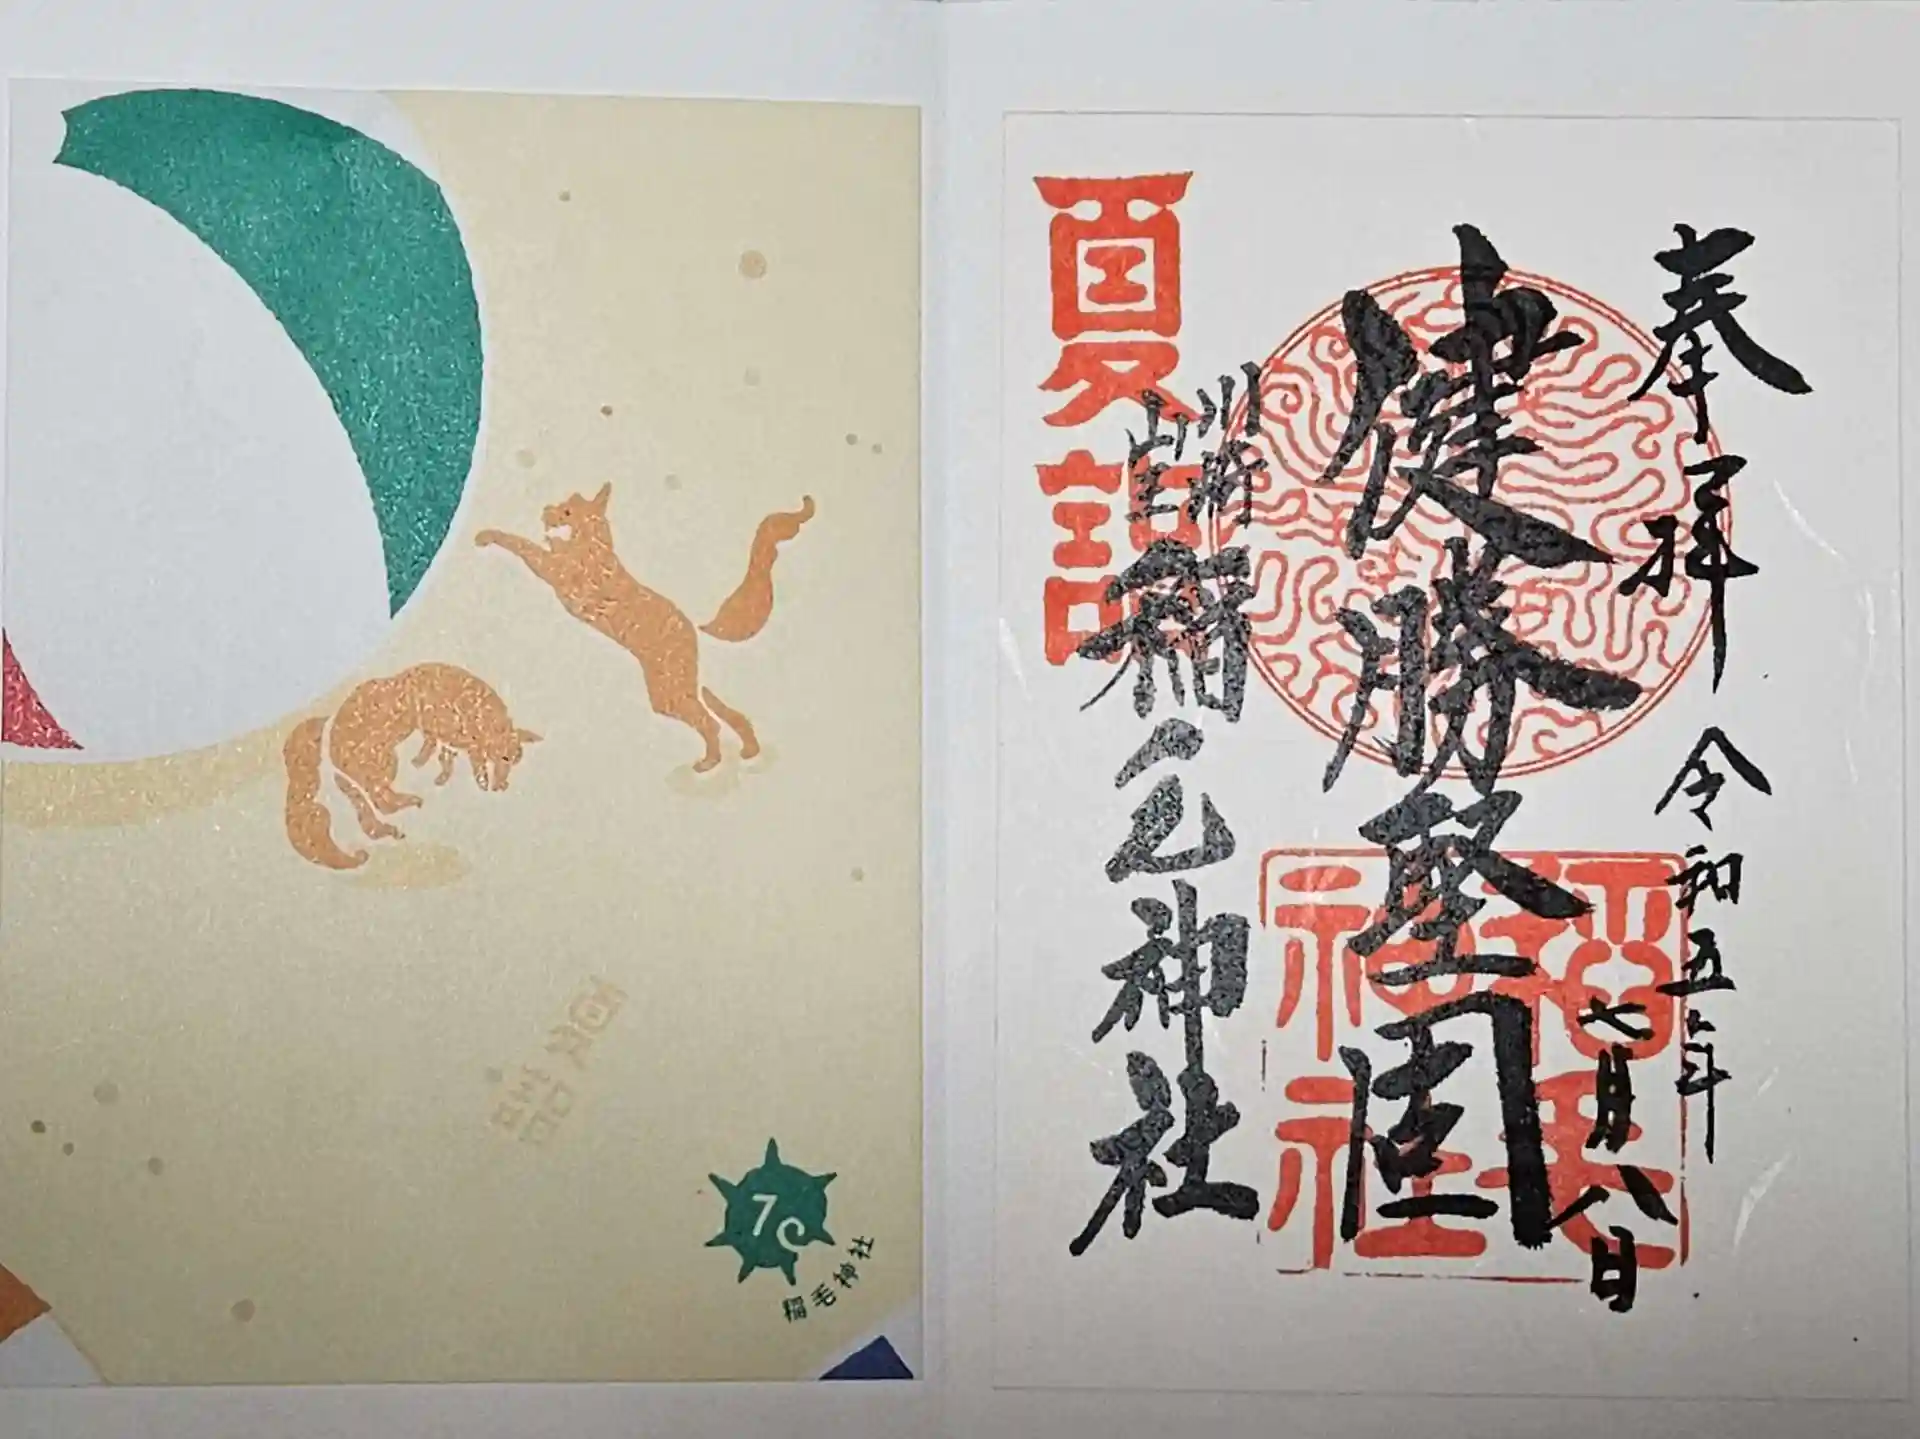 奉拝 令和五年
七月八日
健勝堅固
川崎
山王
稲毛神社
夏詣
稲毛
神社
7
稲毛神社